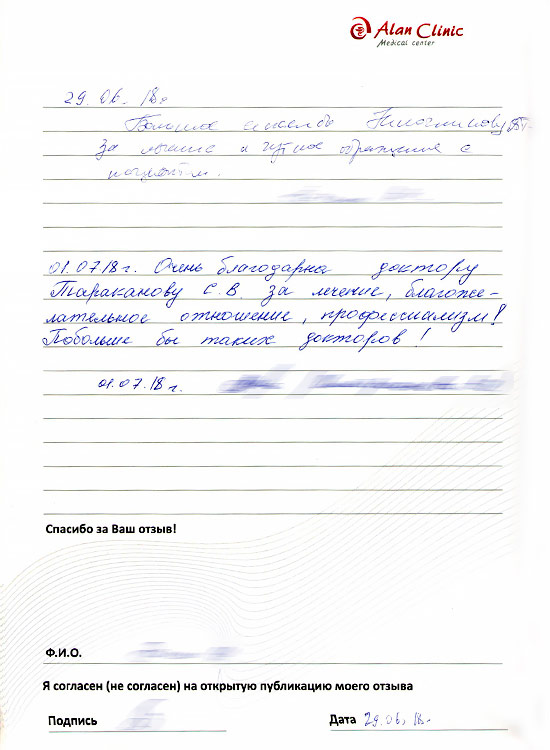 Alan Clinic
Medical center
29.06.18г
Большое спасибо
за и чуткое обращение с
01.07.18г. Очень благодарна доктору
Тараканову С.В. за лечение, благоже-
лательное отношение, професиализм!
Побольше бы таких докторов!
01.07.18г.
Спасибо за Ваш отзыв!
Ф.И.О.
Я согласен (не согласен) на открытую публикацию моего отзыва
Подпись
Дата 29.06.18г.